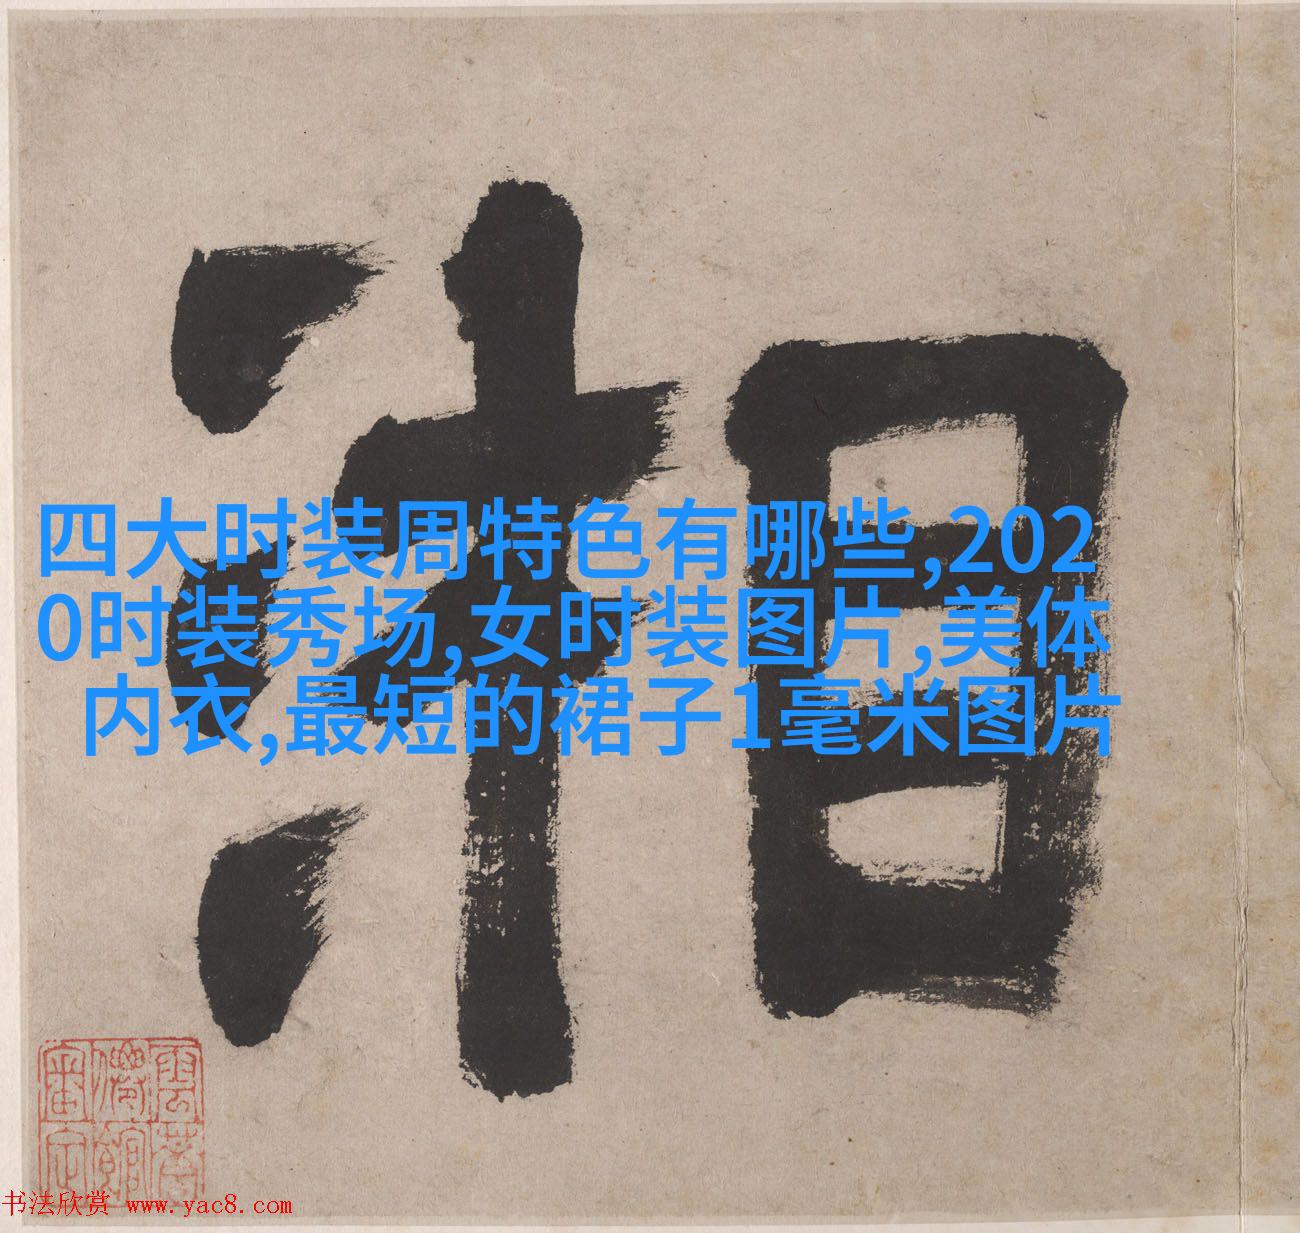 湘
四大时装周特色有哪些,202
0时装秀场,女时装图片,美体
内衣,最短的裙子1毫米图片
书法欣赏 www.yac8.com